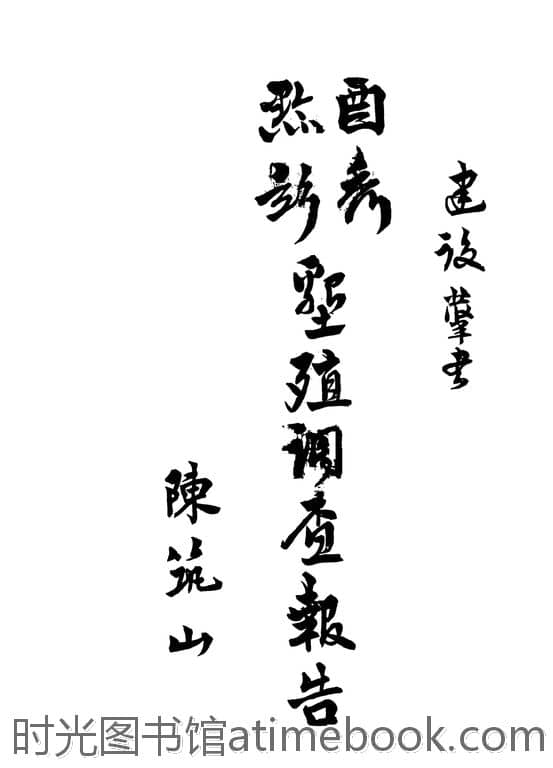 建設叢書
酉秀
黔彭
墾殖調查報告
陳筑山
时光图书馆atimebook.com